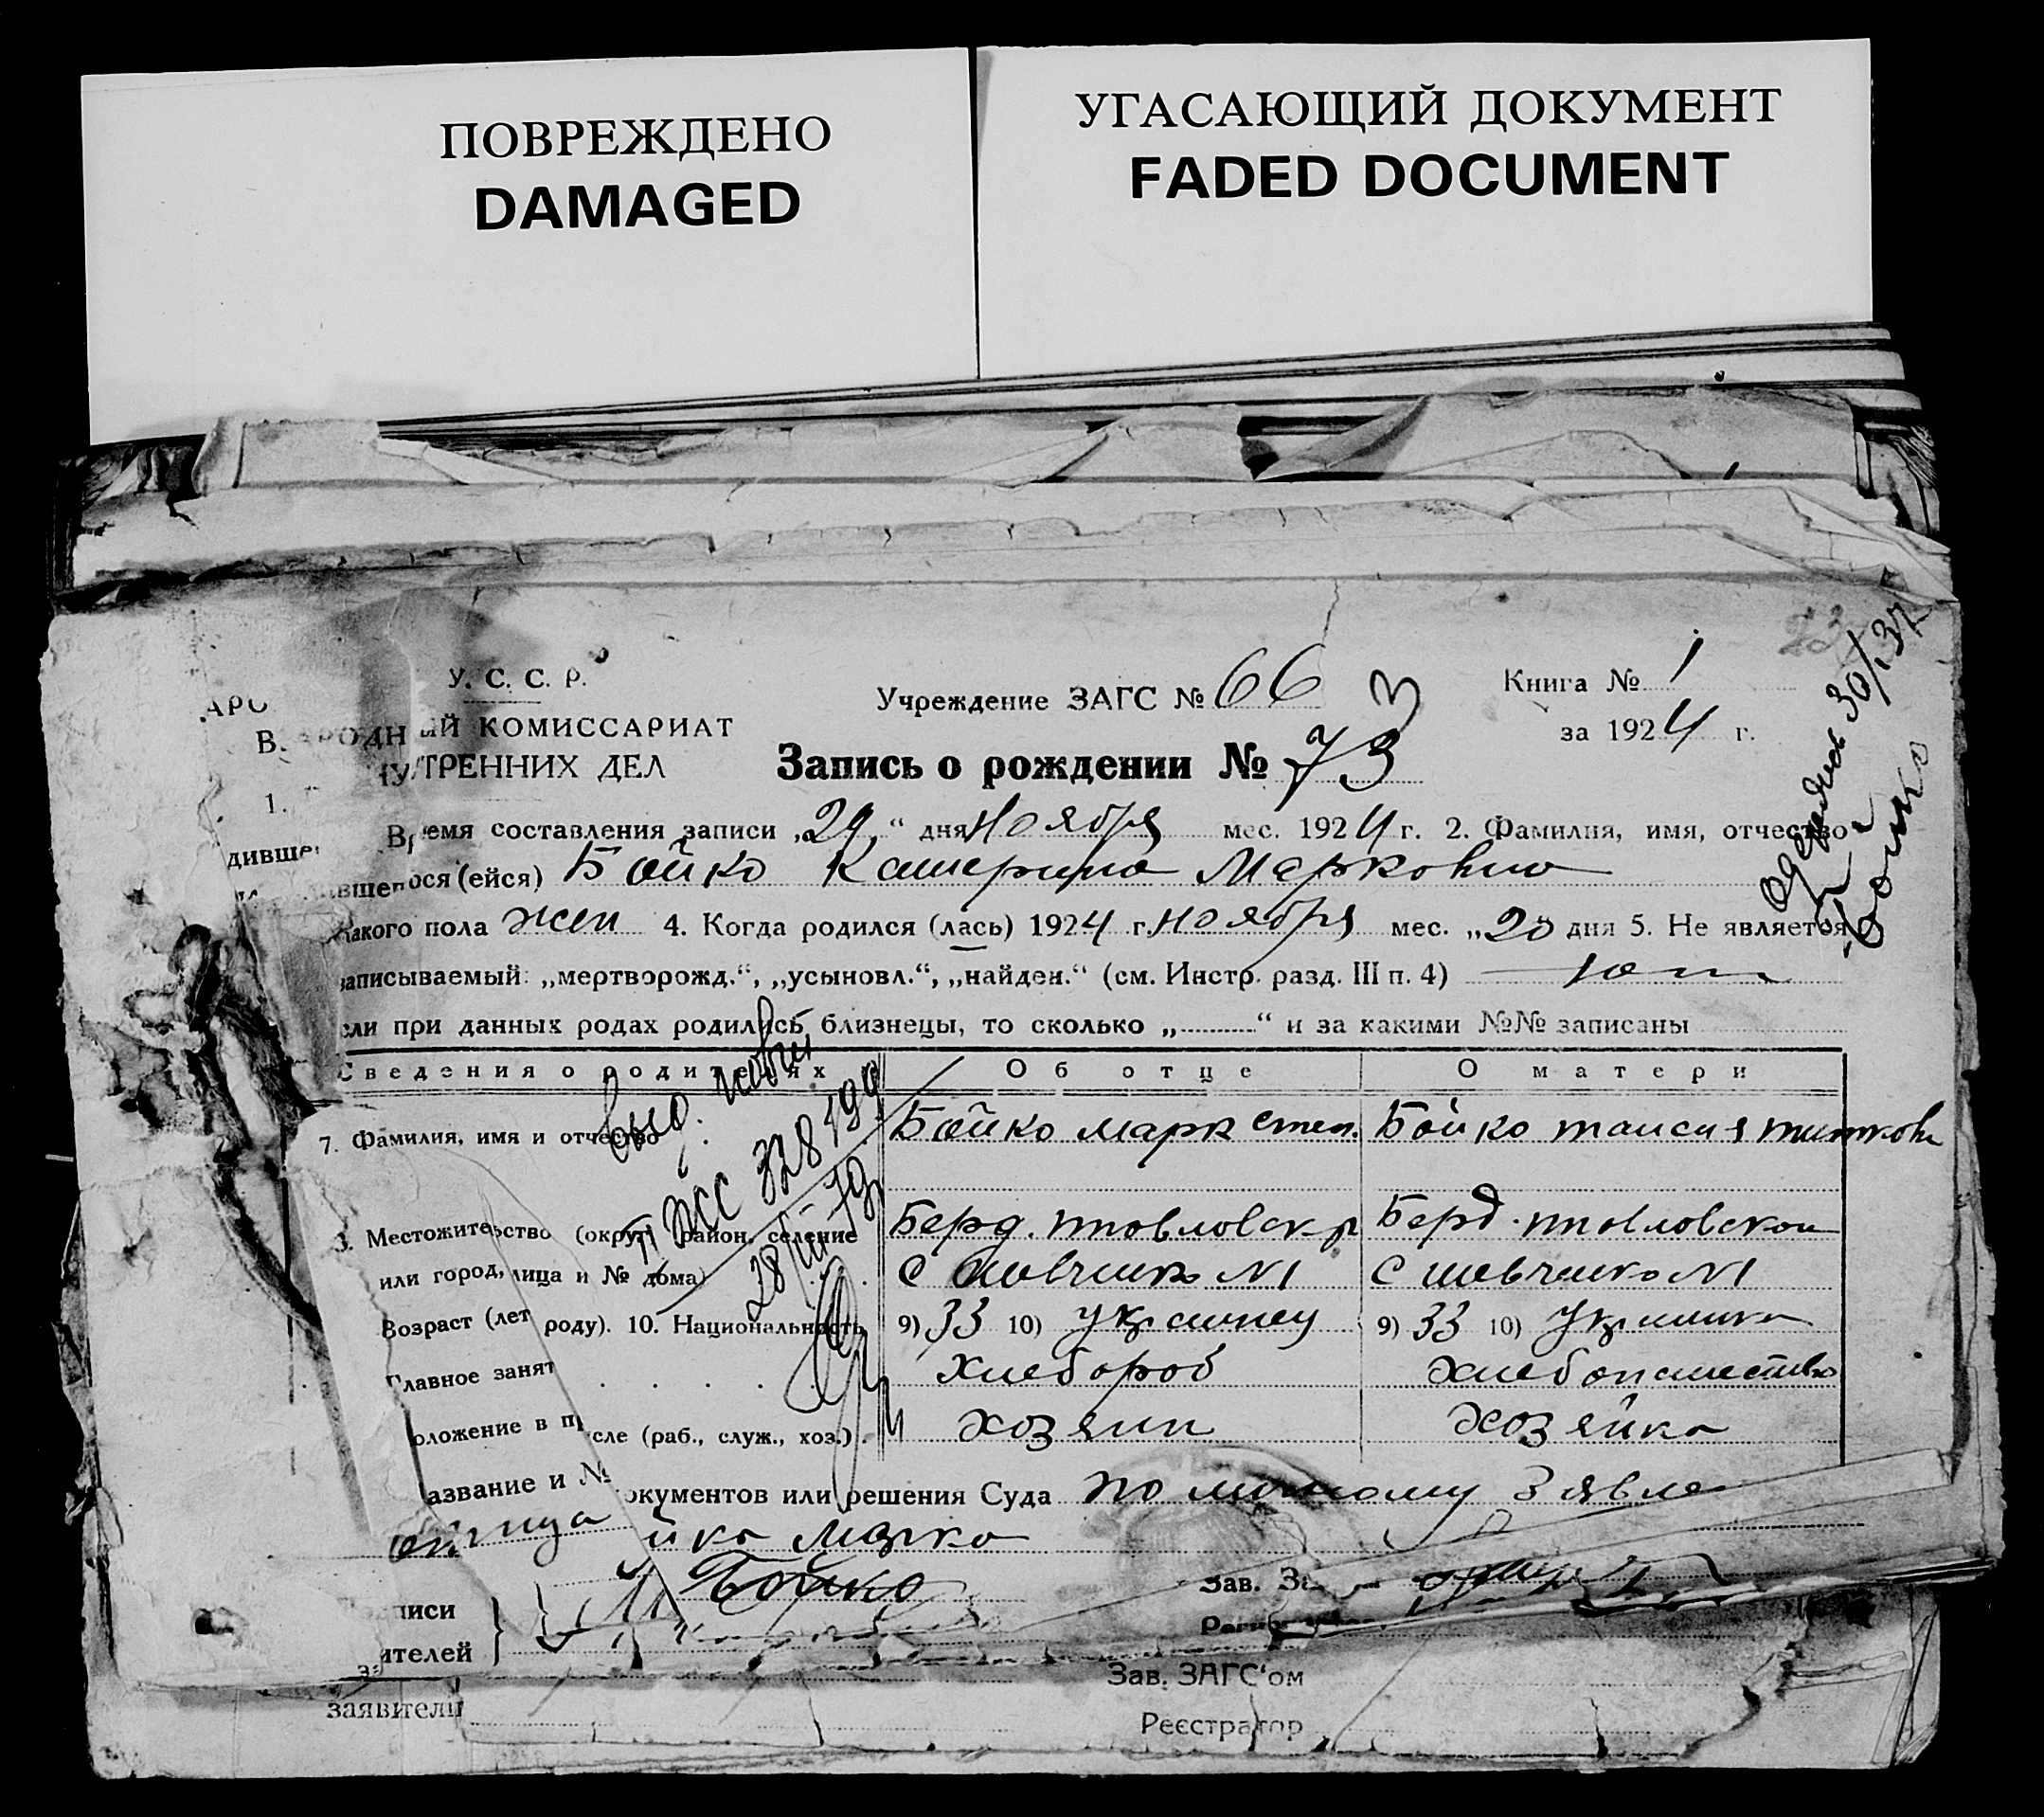 ПОВРЕЖДЕНО
DAMAGED
УГАСАЮЩИЙ ДОКУМЕНТ
FADED DOCUMENT
У. С. С. Р.
НЫЙ КОМИССАРИАТ
ТРЕННИХ ДЕЛ
Учреждение ЗАГС № 66
Книга № 1
за 1924 г.
Запись о рождении № 73
3
1. Время составления записи „29“ дня Ноября мес. 1924 г. 2. Фамилия, имя, отчество
ося (ейся) Бойко Катерина Марковна
какого пола жен 4. Когда родился (лась) 1924 г. Ноября мес. „20 дня 5. Не является
записываемый: „мертворожд.“, „усыновл.“, „найден.“ (см. Инстр. разд. III п. 4)
сли при данных родах родились близнецы, то сколько „ “ и за какими №№ записаны
Сведения о родителях Об отце О матери
7. Фамилия, имя и отчество Бойко Марк Степ. Бойко Таисия
Местожительство (округ, район, селение Берд. Товловск Берд. Товловской
или город, лица и № дома) С Шевченко N1 С Шевченко N1
Возраст (лет роду). 10. Национальность 9) 33 10) Украинец 9) 33 10) Украинка
Главное занят Хлебороб Хлебопашество
оложение в п сле (раб., служ., хоз.) хозяин хозяйка
азвание и № окументов или решения Суда по личному Заявле
йка Марка
Бойко
писи
ителей
Зав. За
Зав. ЗАГС'ом
заявители
Реєстратор
Бойко
328499